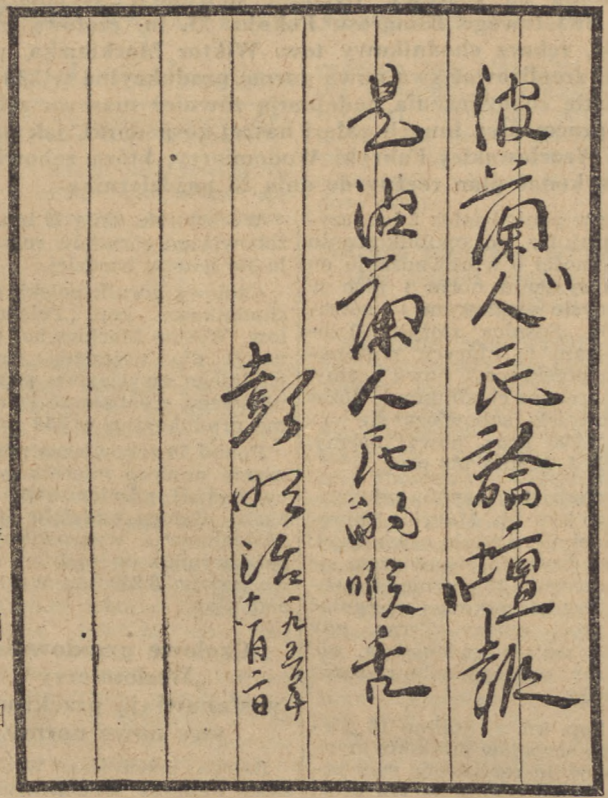 波蘭"人民論壇"報
是波蘭人民的喉舌
彭明治 一九五〇年十一月二日